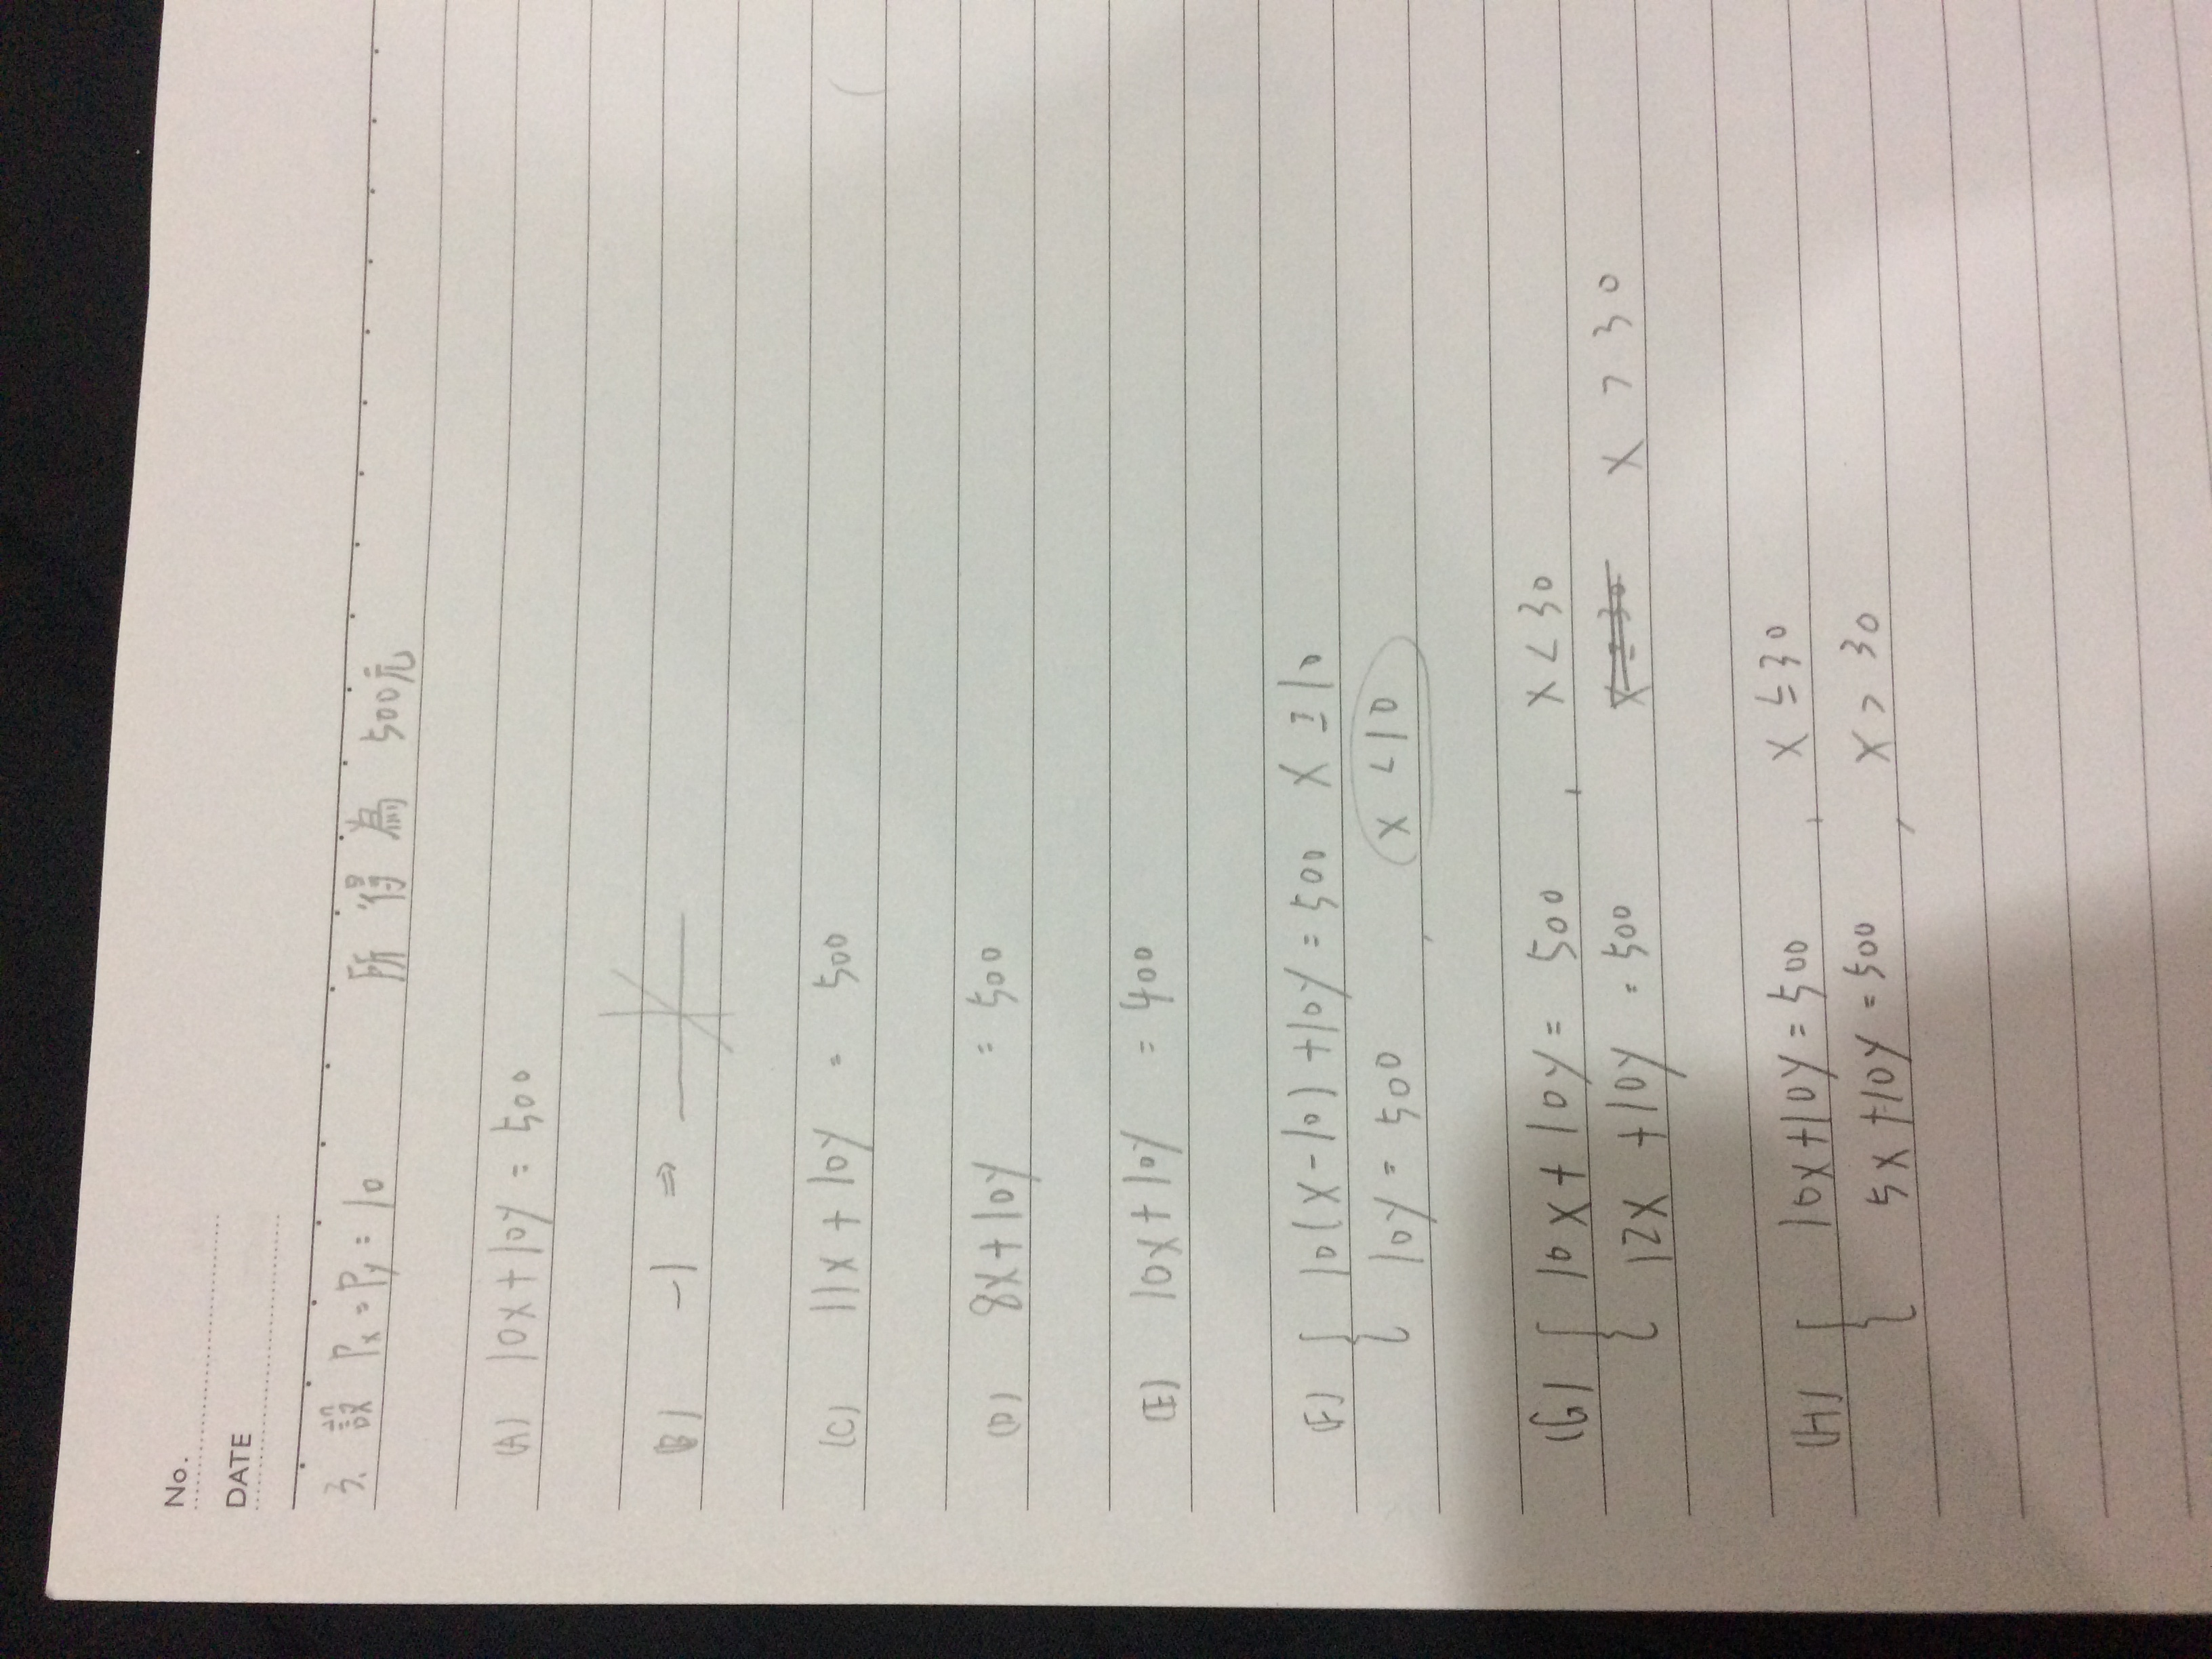 No.
DATE
3. 設 Px = Py = 10 所得為 500元
(A) 10x + 10y = 500
(B) -1 ⇒
(C) 11x + 10y = 500
(D) 8x + 10y = 500
(E) 10x + 10y = 400
(F) { 10(x-10) + 10y = 500 x ≥ 10
10y = 500 , x < 10
(G) { 10x + 10y = 500 , x < 30
12x + 10y = 500 x ≥ 30 x > 30
(H) { 10x + 10y = 500 , x ≤ 30
5x + 10y = 500 , x > 30